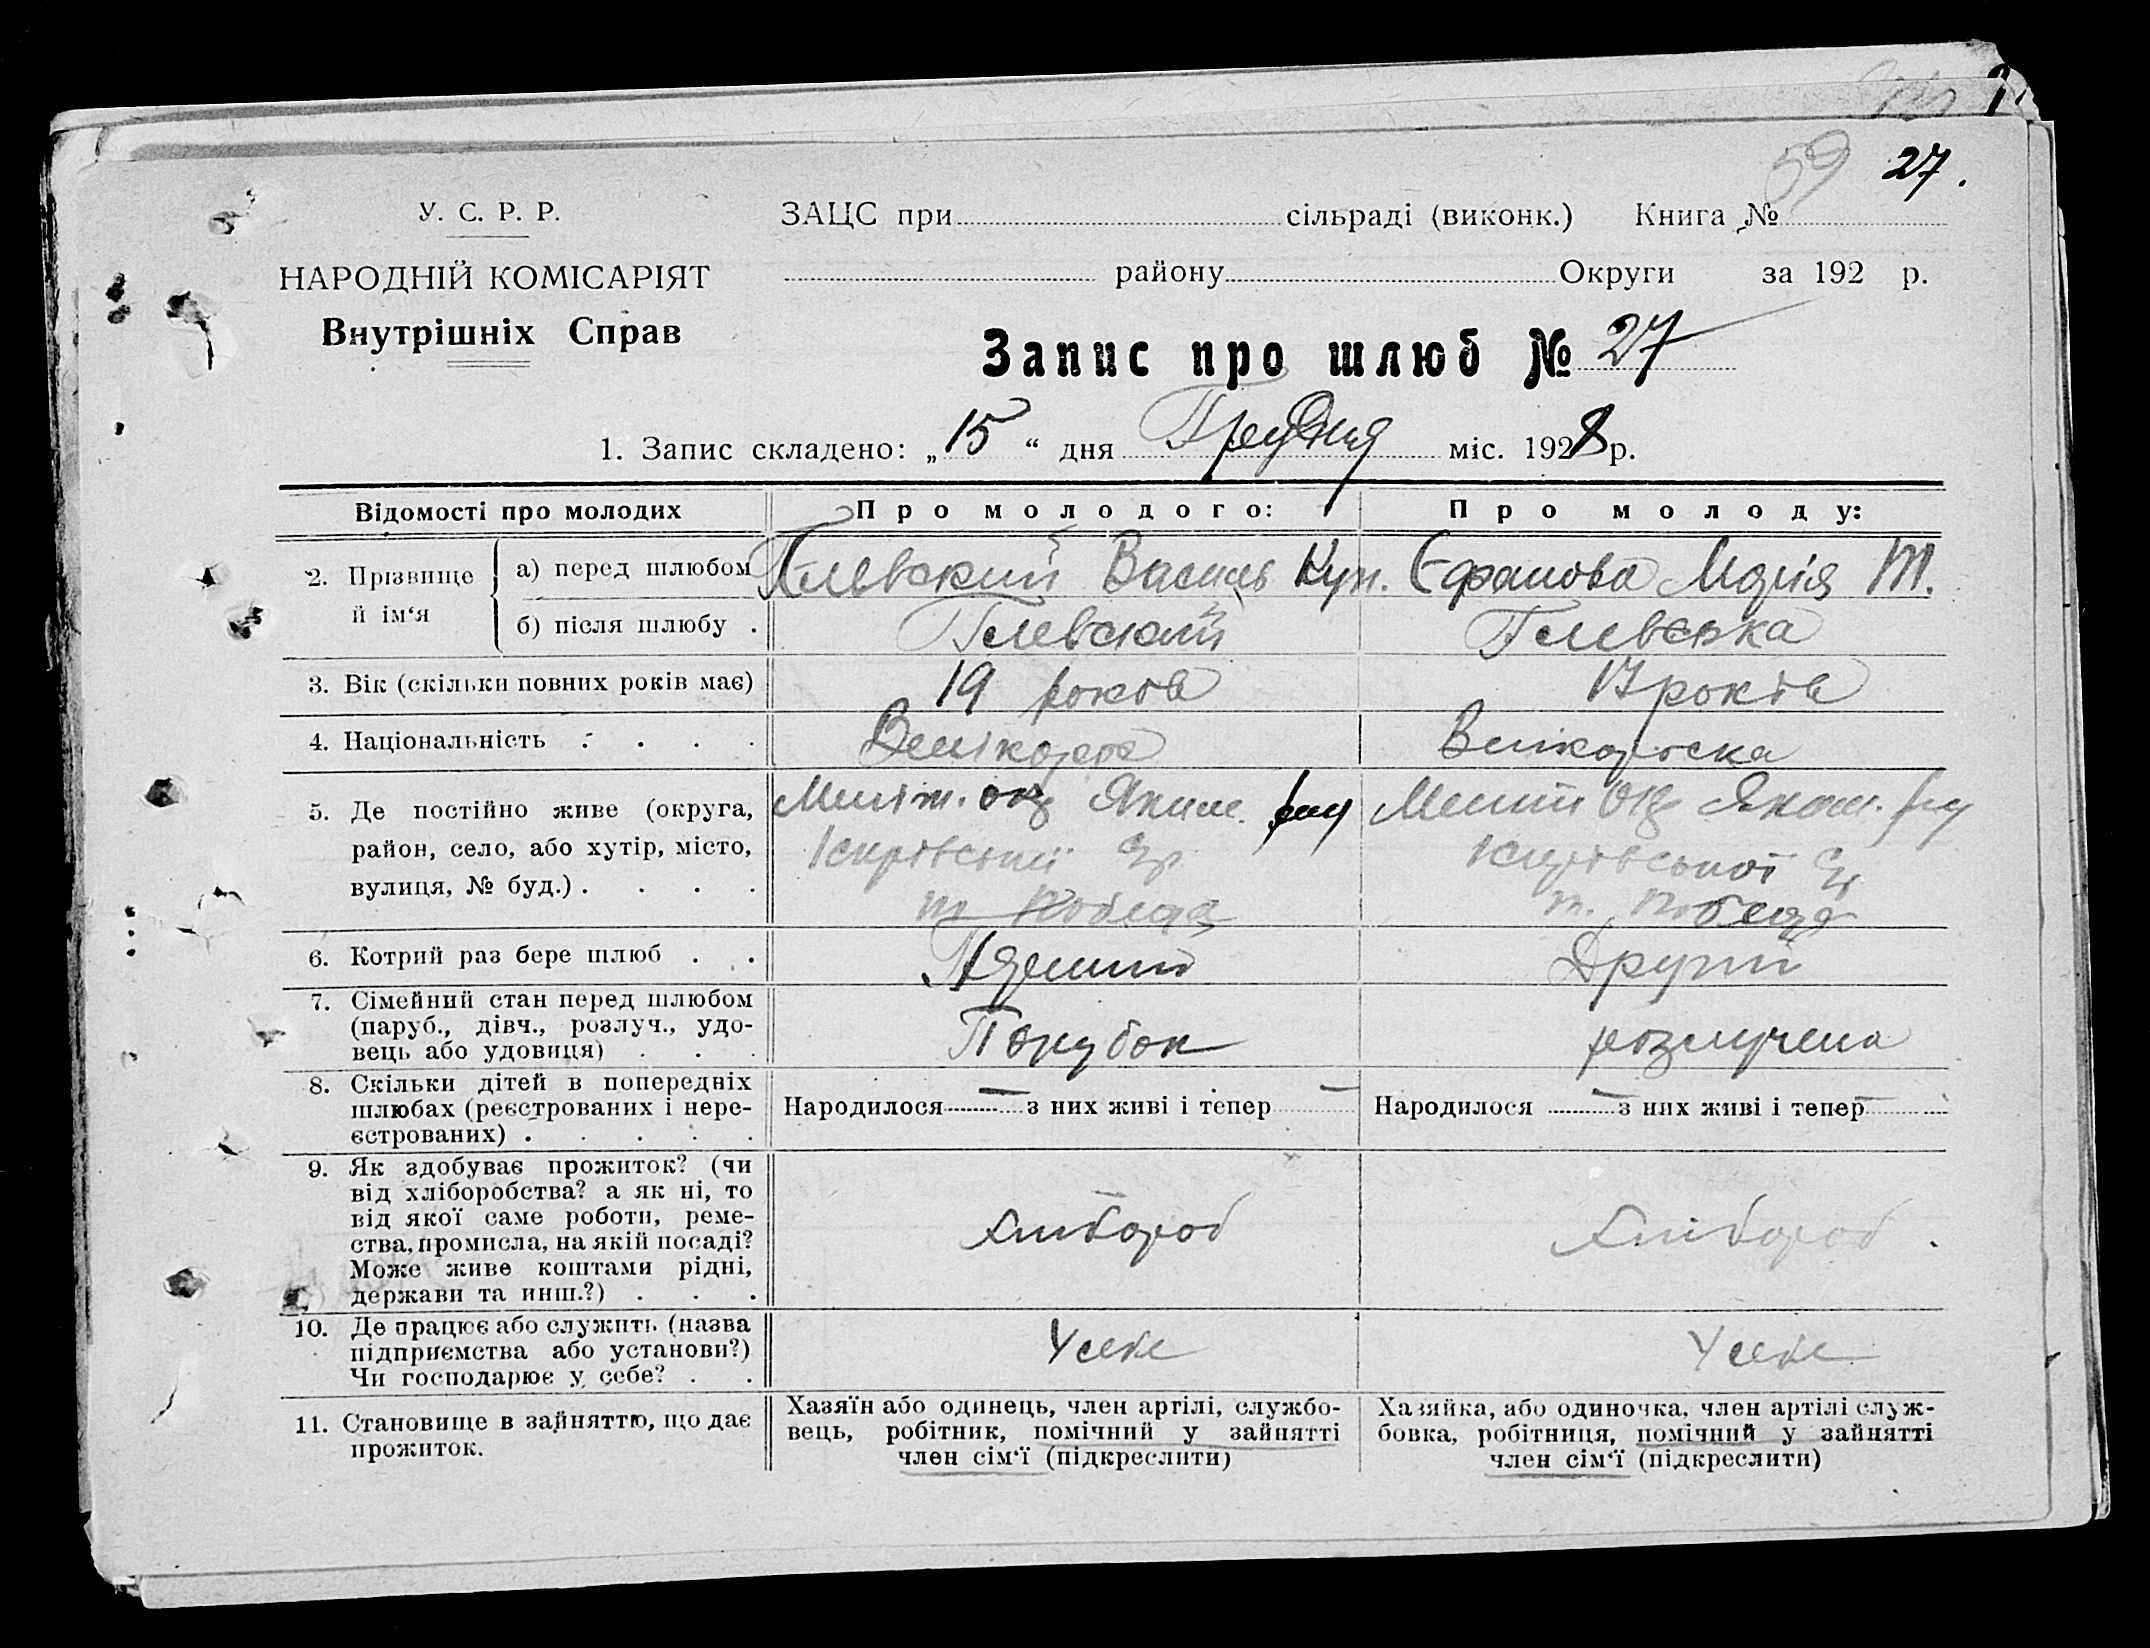 59 27.
У. С. Р. Р. ЗАЦС при сільраді (виконк.) Книга №
НАРОДНІЙ КОМІСАРІЯТ району Округи за 192 р.
Внутрішніх Справ
Запис про шлюб № 27
1. Запис складено: „15“ дня Грудня міс. 1928 р.
Відомості про молодих Про молодого: Про молоду:
2. Прізвище й ім‘я
а) перед шлюбом Василь Куп. Єфанова Марія Т.
б) після шлюбу .
3. Вік (скільки повних років має) 19 років 17 років
4. Національність . . . . Велікорос Велікороска
5. Де постійно живе (округа, Меліт. окр Яким. рну Меліт окр Яким. рну
район, село, або хутір, місто, Кирівської Кирівської
вулиця, № буд.) . . . . т Победа т. Победа
6. Котрий раз бере шлюб . . Перший Другий
7. Сімейний стан перед шлюбом
(паруб., дівч., розлуч., удо-
вець або удовиця) . . . Парубок розлучена
8. Скільки дітей в попередніх
шлюбах (реєстрованих і нере- Народилося — з них живі і тепер — Народилося — з них живі і тепер
єстрованих) . . . . .
9. Як здобуває прожиток? (чи
від хліборобства? а як ні, то
від якої саме роботи, реме-
ства, промисла, на якій посаді? Хлібороб Хлібороб.
Може живе коштами рідні,
держави та инш.?) . . .
10. Де працює або служить (назва
підприємства або установи?) У себе У себе
Чи господарює у себе? . .
11. Становище в зайняттю, що дає
прожиток.
Хазяїн або одинець, член аргілі, службо-
вець, робітник, помічний у зайнятті
член сім‘ї (підкреслити)
Хазяйка, або одиночка, член артілі служ-
бовка, робітниця, помічний у зайнятті
член сім‘ї (підкреслити)